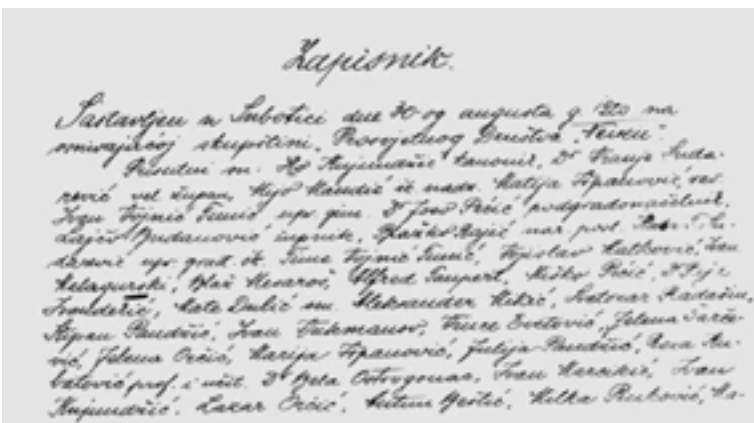 Zapisnik.
Sastavljen u Subotici dne 30-og augusta g. 1920 na
osnivajućoj skupštini, Prosvjetnog Društva „Neven“
Prisutni su. Kujundžić kanonik, Dr Franje Suda-
rević vel. župan, Mijo Mandić šk. nadz. Matija Išpanović,
Ivan Vojnić Tunić upr. gim. Dr Joso Prčić podgradonačelnik,
Lajčo Budanović župnik, Blaško Rajić nar. posl.
upr. grad. Tune Vojnić Tunić, Vojislav Matković, Ivan
Malagurski, Blaž Mesaroš, Alfred Taupert, Miško Prćić,
Mate Dulić Aleksander Mikić, Svetozar Radašin,
Stipan Pandžić, Ivan Tukmanov, Vince Evetović, Jelena
vić, Jelena Orčić, Marija Išpanović, Julija Pandžić, Roza Ru-
batović prof. i učit. Dr Bela Ostrogonac, Ivan Marcikić, Ivan
Kujundžić, Lazar Orčić, Antun Beštić, Milka Ruković, Ma-